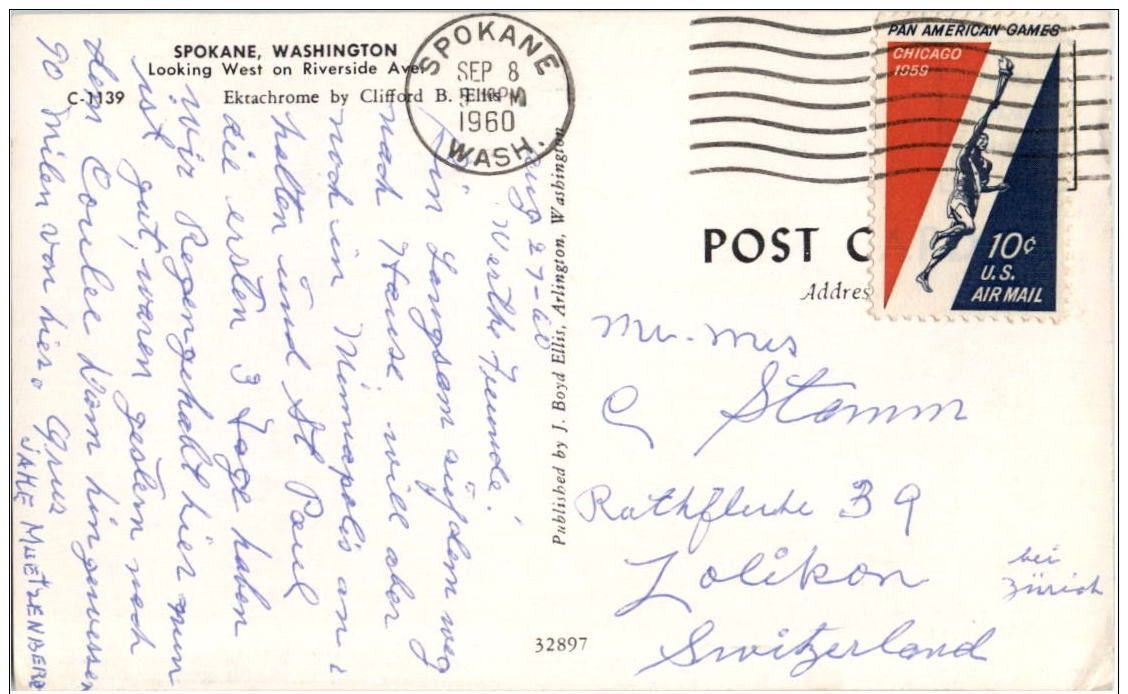 SPOKANE, WASHINGTON
Looking West on Riverside Ave.
C-1139 Ektachrome by Clifford B. Ellis
SPOKANE
SEP 8
PM
1960
WASH.
PAN AMERICAN GAMES
CHICAGO
1959
10¢
U.S.
AIR MAIL
POST C
Addres
Published by J. Boyd Ellis, Arlington, Washington
32897
Aug 27-60
Werthe Freunde!
Bin Langsam auf dem weg
nach Hause will aber
noch in Minnapolis an
halten und St Paul
die ersten 3 Tage haben
Wir Regen gehabt hier nun
ist gut, waren gestern nach
den Coulee Dam hingewessen
90 Milen von hier. Grus
JAKE MUETZENBERG
Mr. Mrs
C Stamm
Rothfluhe 39
Zolikon bei
Zürich
Switzerland